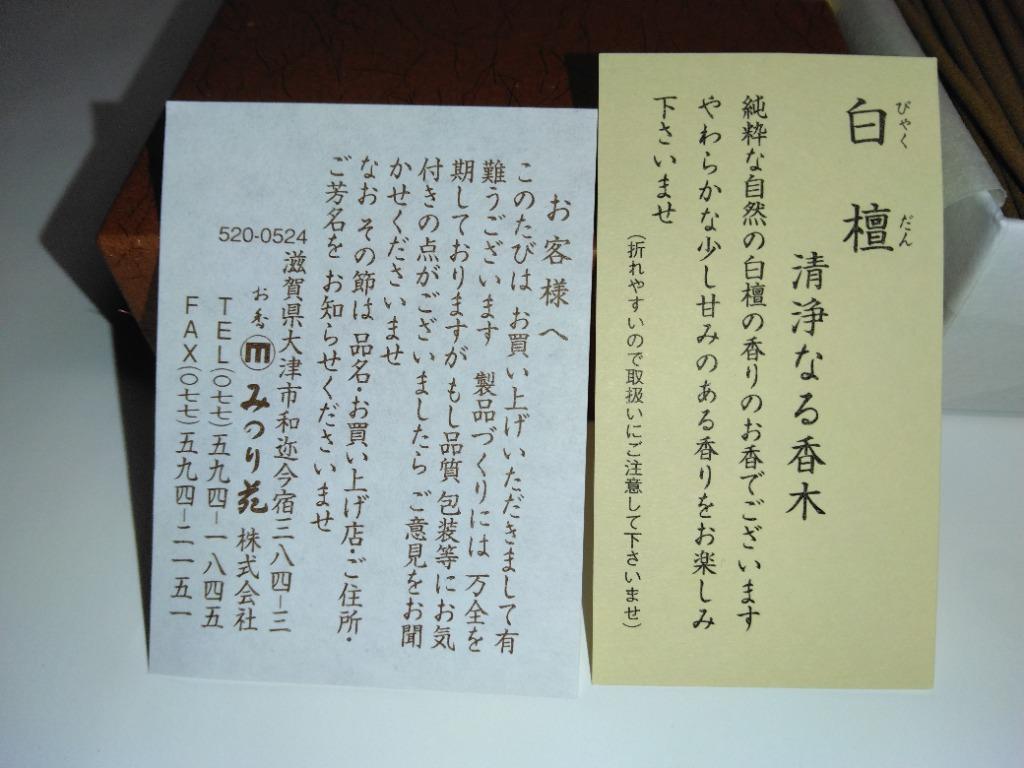 白檀
びゃくだん
清浄なる香木
純粋な自然の白檀の香りのお香でございます
やわらかな少し甘みのある香りをお楽しみ
下さいませ
（折れやすいので取扱いにご注意して下さいませ）
お客様へ
このたびは お買い上げいただきまして有
難うございます 製品づくりには 万全を
期しておりますが もし品質 包装等にお気
付きの点がございましたら ご意見をお聞
かせくださいませ
なお その節は 品名・お買い上げ店・ご住所・
ご芳名を お知らせくださいませ
520-0524
滋賀県大津市和迩今宿三八四－三
お香 m みつり苑 株式会社
TEL(〇七七)五九四－一八四五
FAX(〇七七)五九四－二一五一